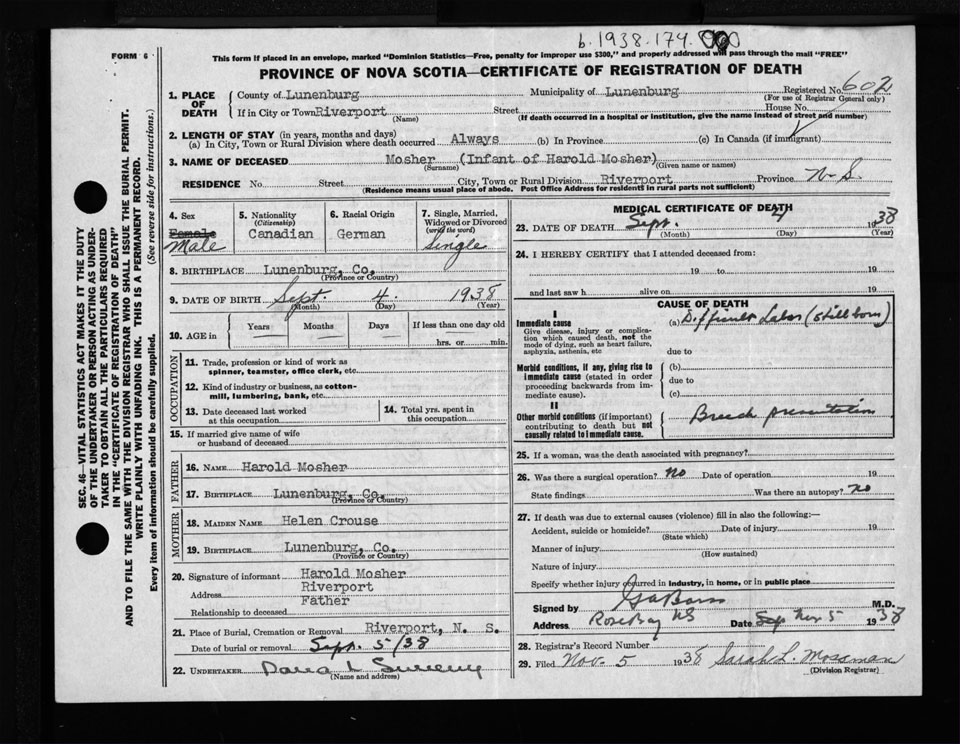 b.1938.174.
FORM 6
This form if placed in an envelope, marked "Dominion Statistics—Free, penalty for improper use $300," and properly addressed will pass through the mail "FREE"
PROVINCE OF NOVA SCOTIA—CERTIFICATE OF REGISTRATION OF DEATH
1. PLACE OF DEATH
County of Lunenburg Municipality of Lunenburg Registered No. 602
(For use of Registrar General only)
If in City or Town Riverport Street House No.
(Name) (If death occurred in a hospital or institution, give the name instead of street and number)
2. LENGTH OF STAY (in years, months and days)
(a) In City, Town or Rural Division where death occurred Always (b) In Province (c) In Canada (if immigrant)
3. NAME OF DECEASED Mosher (Infant of Harold Mosher)
(Surname) (Given name or names)
RESIDENCE No. Street City, Town or Rural Division Riverport Province N. S.
(Residence means usual place of abode. Post Office Address for residents in rural parts not sufficient)
4. Sex
Female
Male
5. Nationality
(Citizenship)
Canadian
6. Racial Origin
German
7. Single, Married,
Widowed or Divorced
(write the word)
Single
8. BIRTHPLACE Lunenburg, Co.
(Province or Country)
9. DATE OF BIRTH Sept. 4. 1938
(Month) (Day) (Year)
10. AGE in
Years Months Days If less than one day old
hrs. or min.
OCCUPATION
11. Trade, profession or kind of work as
spinner, teamster, office clerk, etc.
12. Kind of industry or business, as cotton-
mill, lumbering, bank, etc.
13. Date deceased last worked
at this occupation
14. Total yrs. spent in
this occupation
15. If married give name of wife
or husband of deceased
FATHER
16. NAME Harold Mosher
17. BIRTHPLACE Lunenburg, Co.
(Province or Country)
MOTHER
18. MAIDEN NAME Helen Crouse
19. BIRTHPLACE Lunenburg, Co.
(Province or Country)
20. Signature of informant Harold Mosher
Address Riverport
Relationship to deceased Father
21. Place of Burial, Cremation or Removal Riverport, N. S.
Date of burial or removal Sept. 5/38
22. UNDERTAKER
(Name and address)
MEDICAL CERTIFICATE OF DEATH
23. DATE OF DEATH Sept. 4 1938
(Month) (Day) (Year)
24. I HEREBY CERTIFY that I attended deceased from:
19 to 19
and last saw h alive on 19
CAUSE OF DEATH
I
Immediate cause (a) Difficult Labor (stillborn)
Give disease, injury or complica-
tion which caused death, not the
mode of dying, such as heart failure,
asphyxia, asthenia, etc
due to
Morbid conditions, if any, giving rise to
immediate cause (stated in order
proceeding backwards from im-
mediate cause).
(b)
due to
(c)
II
Other morbid conditions (if important)
contributing to death but not
causally related to immediate cause.
Breech presentation
25. If a woman, was the death associated with pregnancy?
26. Was there a surgical operation? no Date of operation 19
State findings Was there an autopsy? no
27. If death was due to external causes (violence) fill in also the following:—
Accident, suicide or homicide? Date of injury 19
(State which)
Manner of injury
(How sustained)
Nature of injury
Specify whether injury occurred in industry, in home, or in public place
Signed by M.D.
Address Rose Bay NS Date Sep Nov 5 1938
28. Registrar's Record Number
29. Filed Nov. 5 1938 Sarah L. Mossman
(Division Registrar)
SEC. 46—VITAL STATISTICS ACT MAKES IT THE DUTY
OF THE UNDERTAKER OR PERSON ACTING AS UNDER-
TAKER TO OBTAIN ALL THE PARTICULARS REQUIRED
IN THE "CERTIFICATE OF REGISTRATION OF DEATH"
AND TO FILE THE SAME WITH THE DIVISION REGISTRAR WHO SHALL ISSUE THE BURIAL PERMIT.
WRITE PLAINLY WITH UNFADING INK. THIS IS A PERMANENT RECORD.
Every item of information should be carefully supplied. (See reverse side for instructions.)